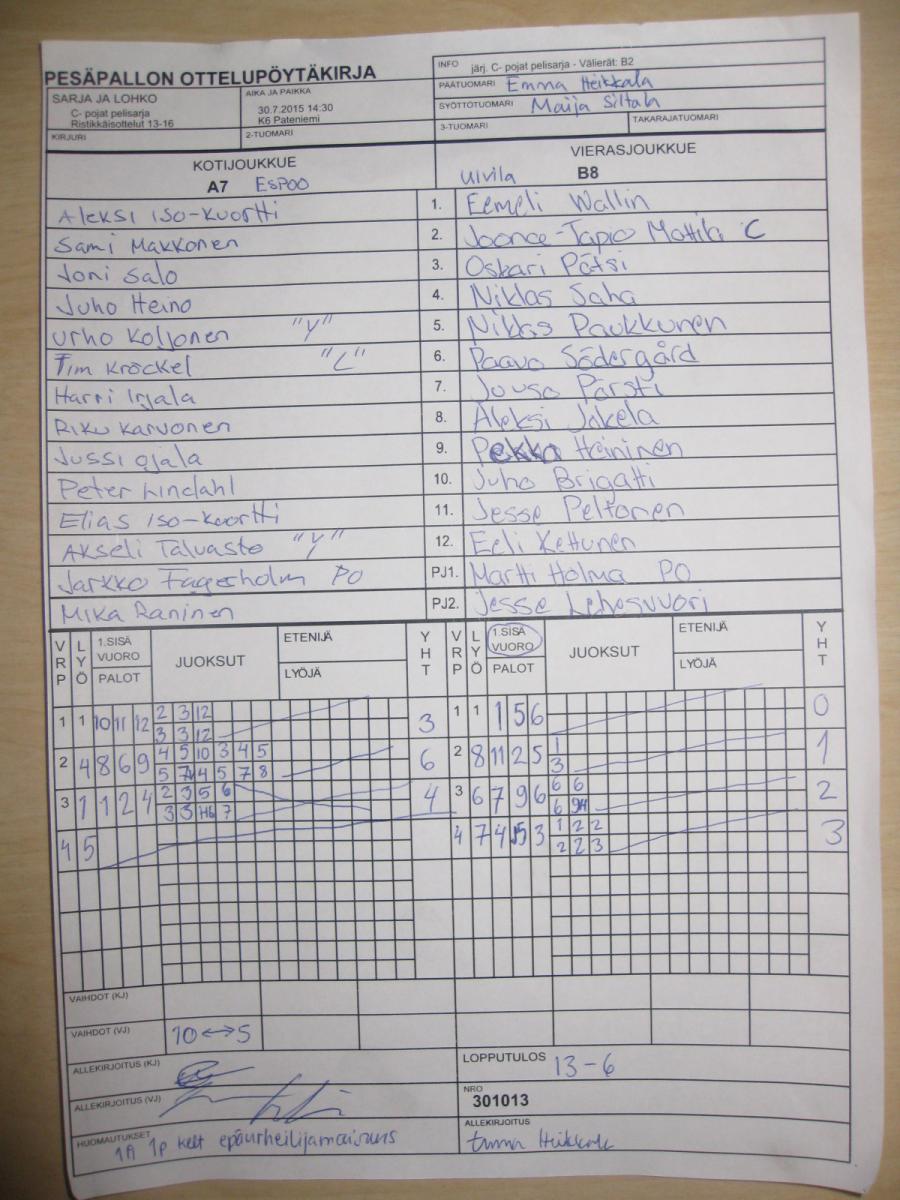 PESÄPALLON OTTELUPÖYTÄKIRJA
INFO järj. C- pojat pelisarja - Välierät: B2
PÄÄTUOMARI Emma Heikkala
SARJA JA LOHKO
C- pojat pelisarja
Ristikkäisottelut 13-16
AIKA JA PAIKKA
30.7.2015 14:30
K6 Pateniemi
SYÖTTÖTUOMARI Maija Siltala
KIRJURI
2-TUOMARI
3-TUOMARI
TAKARAJATUOMARI
KOTIJOUKKUE
A7 ESPOO
VIERASJOUKKUE
Ulvila B8
Aleksi Iso-Kuortti 1. Eemeli Wallin
Sami Makkonen 2. Joona-Tapio Mattila C
Joni Salo 3. Oskari Pätsi
Juho Heino 4. Niklas Saha
Urho Koljonen "Y" 5. Niklas Paukkunen
Tim Kröckel "L" 6. Paavo Södergård
Harri Irjala 7. Juuso Pärsti
Riku Karvonen 8. Aleksi Jokela
Jussi Ojala 9. Pekka Heininen
Peter Lindahl 10. Juho Brigatti
Elias Iso-Kuortti 11. Jesse Peltonen
Akseli Talvasto "Y" 12. Eeli Kettunen
Jarkko Fagerholm PO PJ1. Martti Holma PO
Mika Raninen PJ2. Jesse Lehesvuori
VRP LYÖ 1.SISÄ VUORO PALOT JUOKSUT ETENIJÄ LYÖJÄ YHT VRP LYÖ 1.SISÄ VUORO PALOT JUOKSUT ETENIJÄ LYÖJÄ YHT
1 1 10 11 12 2 3 12 3 1 1 1 5 6 0
3 3 12
2 4 8 6 9 4 5 10 3 4 5 6 2 8 11 2 5 1 1
5 7 4 5 7 8 3
3 1 1 2 4 2 3 5 6 4 3 6 7 9 6 6 6 2
3 3 7 6
4 5 4 7 4 5 3 1 2 2 3
2 2 3
VAIHDOT (KJ)
VAIHDOT (VJ) 10 ↔ 5
ALLEKIRJOITUS (KJ)
LOPPUTULOS 13-6
ALLEKIRJOITUS (VJ)
NRO
301013
HUOMAUTUKSET
1A 1p kelt epäurheilijamaisuus
ALLEKIRJOITUS
Emma Heikkala